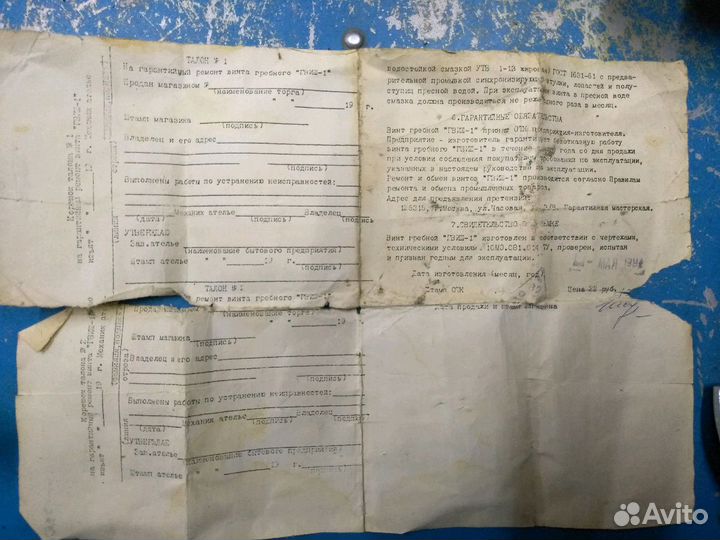 ТАЛОН № 1
На гарантийный ремонт винта гребного "ГВИД-1"
Продан магазином №
(наименование торга)
" " 19 г.
Штамп магазина
(подпись)
Владелец и его адрес
(подпись)
Выполнены работы по устранению неисправностей:
Механик ателье Владелец
(дата) (подпись) (подпись)
УТВЕРЖДАЮ
Зав.ателье
(наименование бытового предприятия)
Штамп ателье " " 19 г.
(подпись)
Корешок талона № 1
на гарантийный ремонт винта "ГВИД-1"
изъят " " 19 г. Механик ателье
водостойкой смазкой УТВ 1-13 жировая ГОСТ 1631-61 с предва-
рительной промывкой ступки, лопастей и полу-
ступиц пресной водой. При эксплуатации винта в пресной воде
смазка должна производиться не реже раза в месяц.
6.ГАРАНТИЙНЫЕ ОБЯЗАТЕЛЬСТВА
Винт гребной "ГВИД-1" принят ОТК предприятия-изготовителя.
Предприятие - изготовитель гарантирует безотказную работу
винта гребного "ГВИД-1" в течение года со дня продажи
при условии соблюдения покупателем требования по эксплуатации,
указанных в настоящем руководстве по эксплуатации.
Ремонт и обмен винтов "ГВИД-1" производится согласно Правилам
ремонта и обмена промышленных товаров.
Адрес для предъявления претензий:
125315, г.Москва, ул.Часовая, Гарантийная мастерская.
7.СВИДЕТЕЛЬСТВО О ПРИЕМКЕ
Винт гребной "ГВИД-1" изготовлен в соответствии с чертежами,
техническими условиями ТУ, проверен, испытан
и признан годным для эксплуатации.
МАЙ 1991
Дата изготовления (месяц, год)
Штамп ОТК Цена 22 руб.
Дата продажи и штамп магазина
ТАЛОН № 1
ремонт винта гребного "ГВИД-1"
(наименование торга)
19
Штамп магазина
(подпись)
Владелец и его адрес
(подпись)
Выполнены работы по устранению неисправностей:
Механик ателье Владелец
(дата) (подпись) (подпись)
УТВЕРЖДАЮ
Зав.ателье
(наименование бытового предприятия)
Штамп ателье " " 19 г.
(подпись)
Корешок талона № 2
на гарантийный ремонт винта "ГВИД-1"
изъят " " 19 г. Механик ателье
Avito